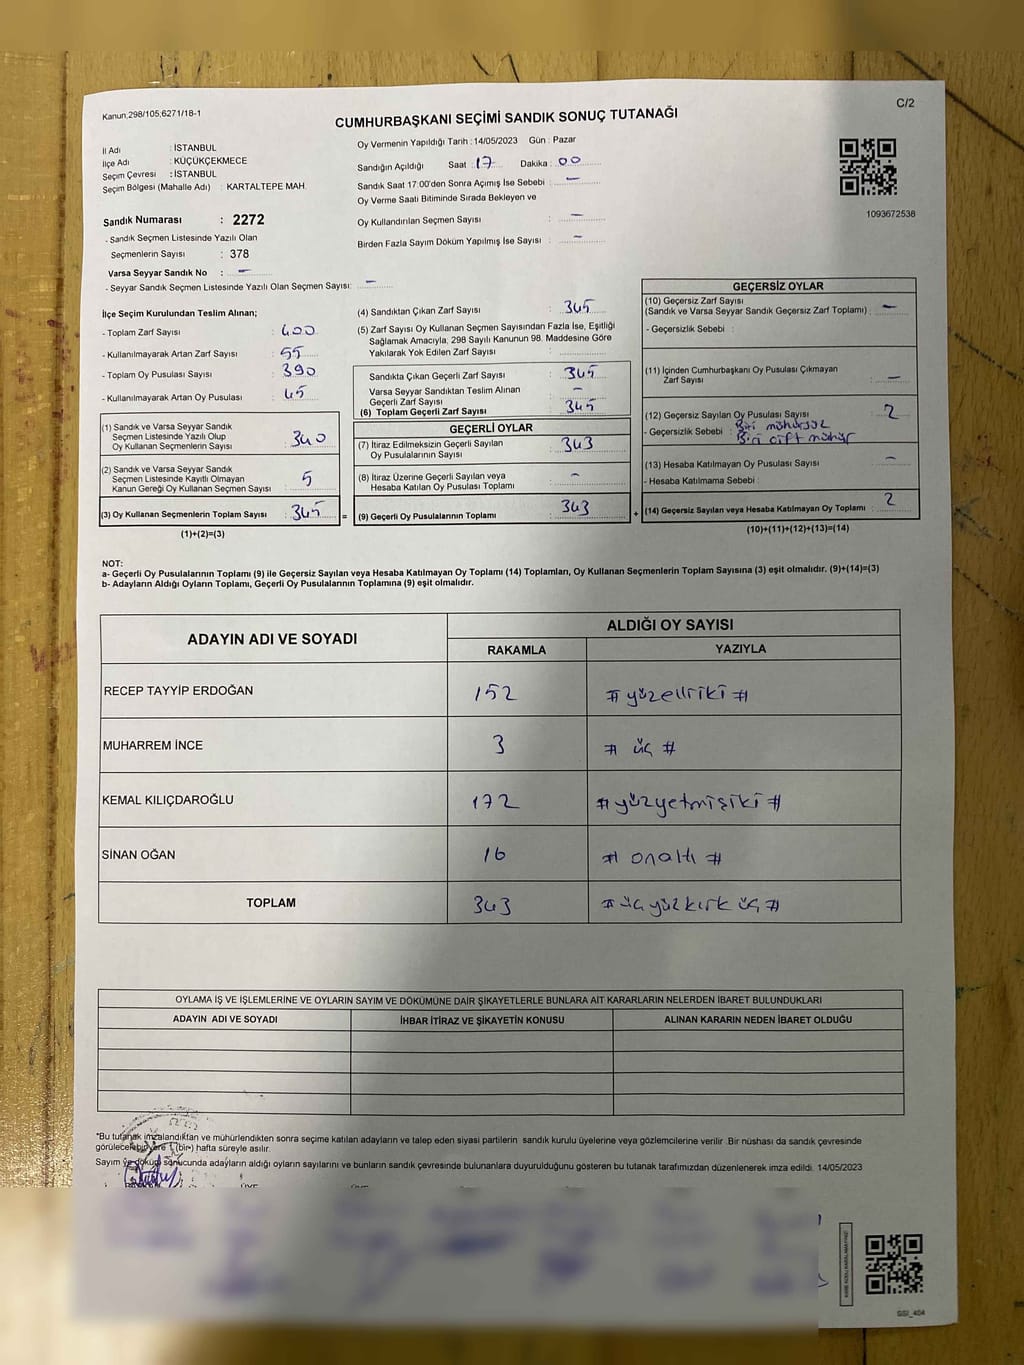 Kanun;298/105;6271/18-1
C/2
CUMHURBAŞKANI SEÇİMİ SANDIK SONUÇ TUTANAĞI
İl Adı : İSTANBUL
İlçe Adı : KÜÇÜKÇEKMECE
Seçim Çevresi : İSTANBUL
Seçim Bölgesi (Mahalle Adı) : KARTALTEPE MAH.
Sandık Numarası : 2272
- Sandık Seçmen Listesinde Yazılı Olan
Seçmenlerin Sayısı : 378
Varsa Seyyar Sandık No : -
- Seyyar Sandık Seçmen Listesinde Yazılı Olan Seçmen Sayısı: -
Oy Vermenin Yapıldığı Tarih : 14/05/2023 Gün : Pazar
Sandığın Açıldığı Saat : 17 Dakika : 00
Sandık Saat 17:00'den Sonra Açımış İse Sebebi : -
Oy Verme Saati Bitiminde Sırada Bekleyen ve
Oy Kullandırılan Seçmen Sayısı : -
Birden Fazla Sayım Döküm Yapılmış İse Sayısı : -
1093672538
İlçe Seçim Kurulundan Teslim Alınan;
- Toplam Zarf Sayısı : 400
- Kullanılmayarak Artan Zarf Sayısı : 55
- Toplam Oy Pusulası Sayısı : 390
- Kullanılmayarak Artan Oy Pusulası : 45
(1) Sandık ve Varsa Seyyar Sandık
Seçmen Listesinde Yazılı Olup
Oy Kullanan Seçmenlerin Sayısı : 340
(2) Sandık ve Varsa Seyyar Sandık
Seçmen Listesinde Kayıtlı Olmayan
Kanun Gereği Oy Kullanan Seçmen Sayısı : 5
(3) Oy Kullanan Seçmenlerin Toplam Sayısı : 345
(1)+(2)=(3)
(4) Sandıktan Çıkan Zarf Sayısı : 345
(5) Zarf Sayısı Oy Kullanan Seçmen Sayısından Fazla İse, Eşitliği
Sağlamak Amacıyla, 298 Sayılı Kanunun 98. Maddesine Göre
Yakılarak Yok Edilen Zarf Sayısı :
Sandıkta Çıkan Geçerli Zarf Sayısı : 345
Varsa Seyyar Sandıktan Teslim Alınan
Geçerli Zarf Sayısı : -
(6) Toplam Geçerli Zarf Sayısı : 345
GEÇERLİ OYLAR
(7) İtiraz Edilmeksizin Geçerli Sayılan
Oy Pusulalarının Sayısı : 343
(8) İtiraz Üzerine Geçerli Sayılan veya
Hesaba Katılan Oy Pusulası Toplamı : -
= (9) Geçerli Oy Pusulalarının Toplamı : 343 +
GEÇERSİZ OYLAR
(10) Geçersiz Zarf Sayısı
(Sandık ve Varsa Seyyar Sandık Geçersiz Zarf Toplamı) : -
- Geçersizlik Sebebi :
(11) İçinden Cumhurbaşkanı Oy Pusulası Çıkmayan
Zarf Sayısı : -
(12) Geçersiz Sayılan Oy Pusulası Sayısı : 2
- Geçersizlik Sebebi : Biri mühürsüz
Biri çift mühür
(13) Hesaba Katılmayan Oy Pusulası Sayısı : -
- Hesaba Katılmama Sebebi :
(14) Geçersiz Sayılan veya Hesaba Katılmayan Oy Toplamı : 2
(10)+(11)+(12)+(13)=(14)
NOT:
a- Geçerli Oy Pusulalarının Toplamı (9) ile Geçersiz Sayılan veya Hesaba Katılmayan Oy Toplamı (14) Toplamları, Oy Kullanan Seçmenlerin Toplam Sayısına (3) eşit olmalıdır. (9)+(14)=(3)
b- Adayların Aldığı Oyların Toplamı, Geçerli Oy Pusulalarının Toplamına (9) eşit olmalıdır.
ADAYIN ADI VE SOYADI ALDIĞI OY SAYISI
RAKAMLA YAZIYLA
RECEP TAYYİP ERDOĞAN 152 # yüzelliiki #
MUHARREM İNCE 3 # üç #
KEMAL KILIÇDAROĞLU 172 # yüzyetmişiki #
SİNAN OĞAN 16 # onaltı #
TOPLAM 343 # üçyüzkırk üç #
OYLAMA İŞ VE İŞLEMLERİNE VE OYLARIN SAYIM VE DÖKÜMÜNE DAİR ŞİKAYETLERLE BUNLARA AİT KARARLARIN NELERDEN İBARET BULUNDUKLARI
ADAYIN ADI VE SOYADI İHBAR İTİRAZ VE ŞİKAYETİN KONUSU ALINAN KARARIN NEDEN İBARET OLDUĞU
*Bu tutanak imzalandıktan ve mühürlendikten sonra seçime katılan adayların ve talep eden siyasi partilerin sandık kurulu üyelerine veya gözlemcilerine verilir .Bir nüshası da sandık çevresinde
görülecek bir yere 1 (bir) hafta süreyle asılır.
Sayım ve döküm sonucunda adayların aldığı oyların sayılarını ve bunların sandık çevresinde bulunanlara duyurulduğunu gösteren bu tutanak tarafımızdan düzenlenerek imza edildi. 14/05/2023
GSI_404